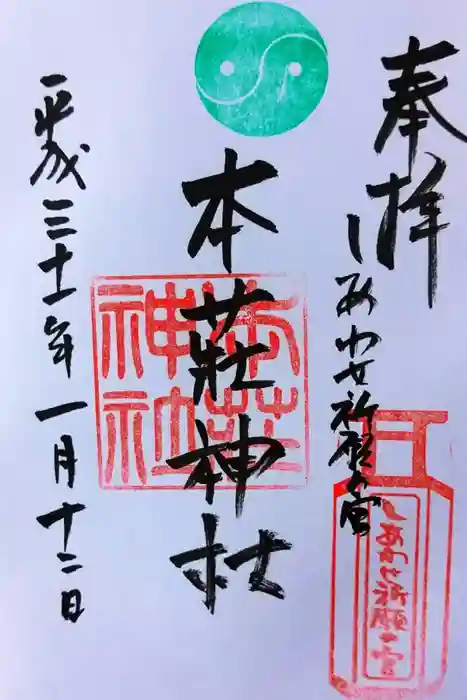 奉拝
しあわせ祈願の宮
本荘神社
本荘神社
しあわせ祈願の宮
平成三十一年一月十二日